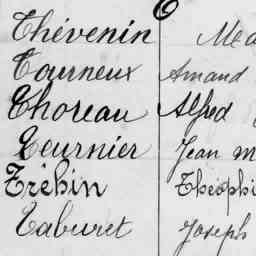 Thévenin
Tourneux Amand
Thoreau Alfred
Teurnier Jean M
Tréhin Théophi
Taburet Joseph